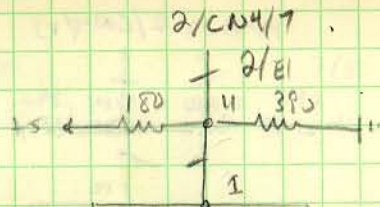 2/CN4/7
2/E1
180 11 390
+5
1